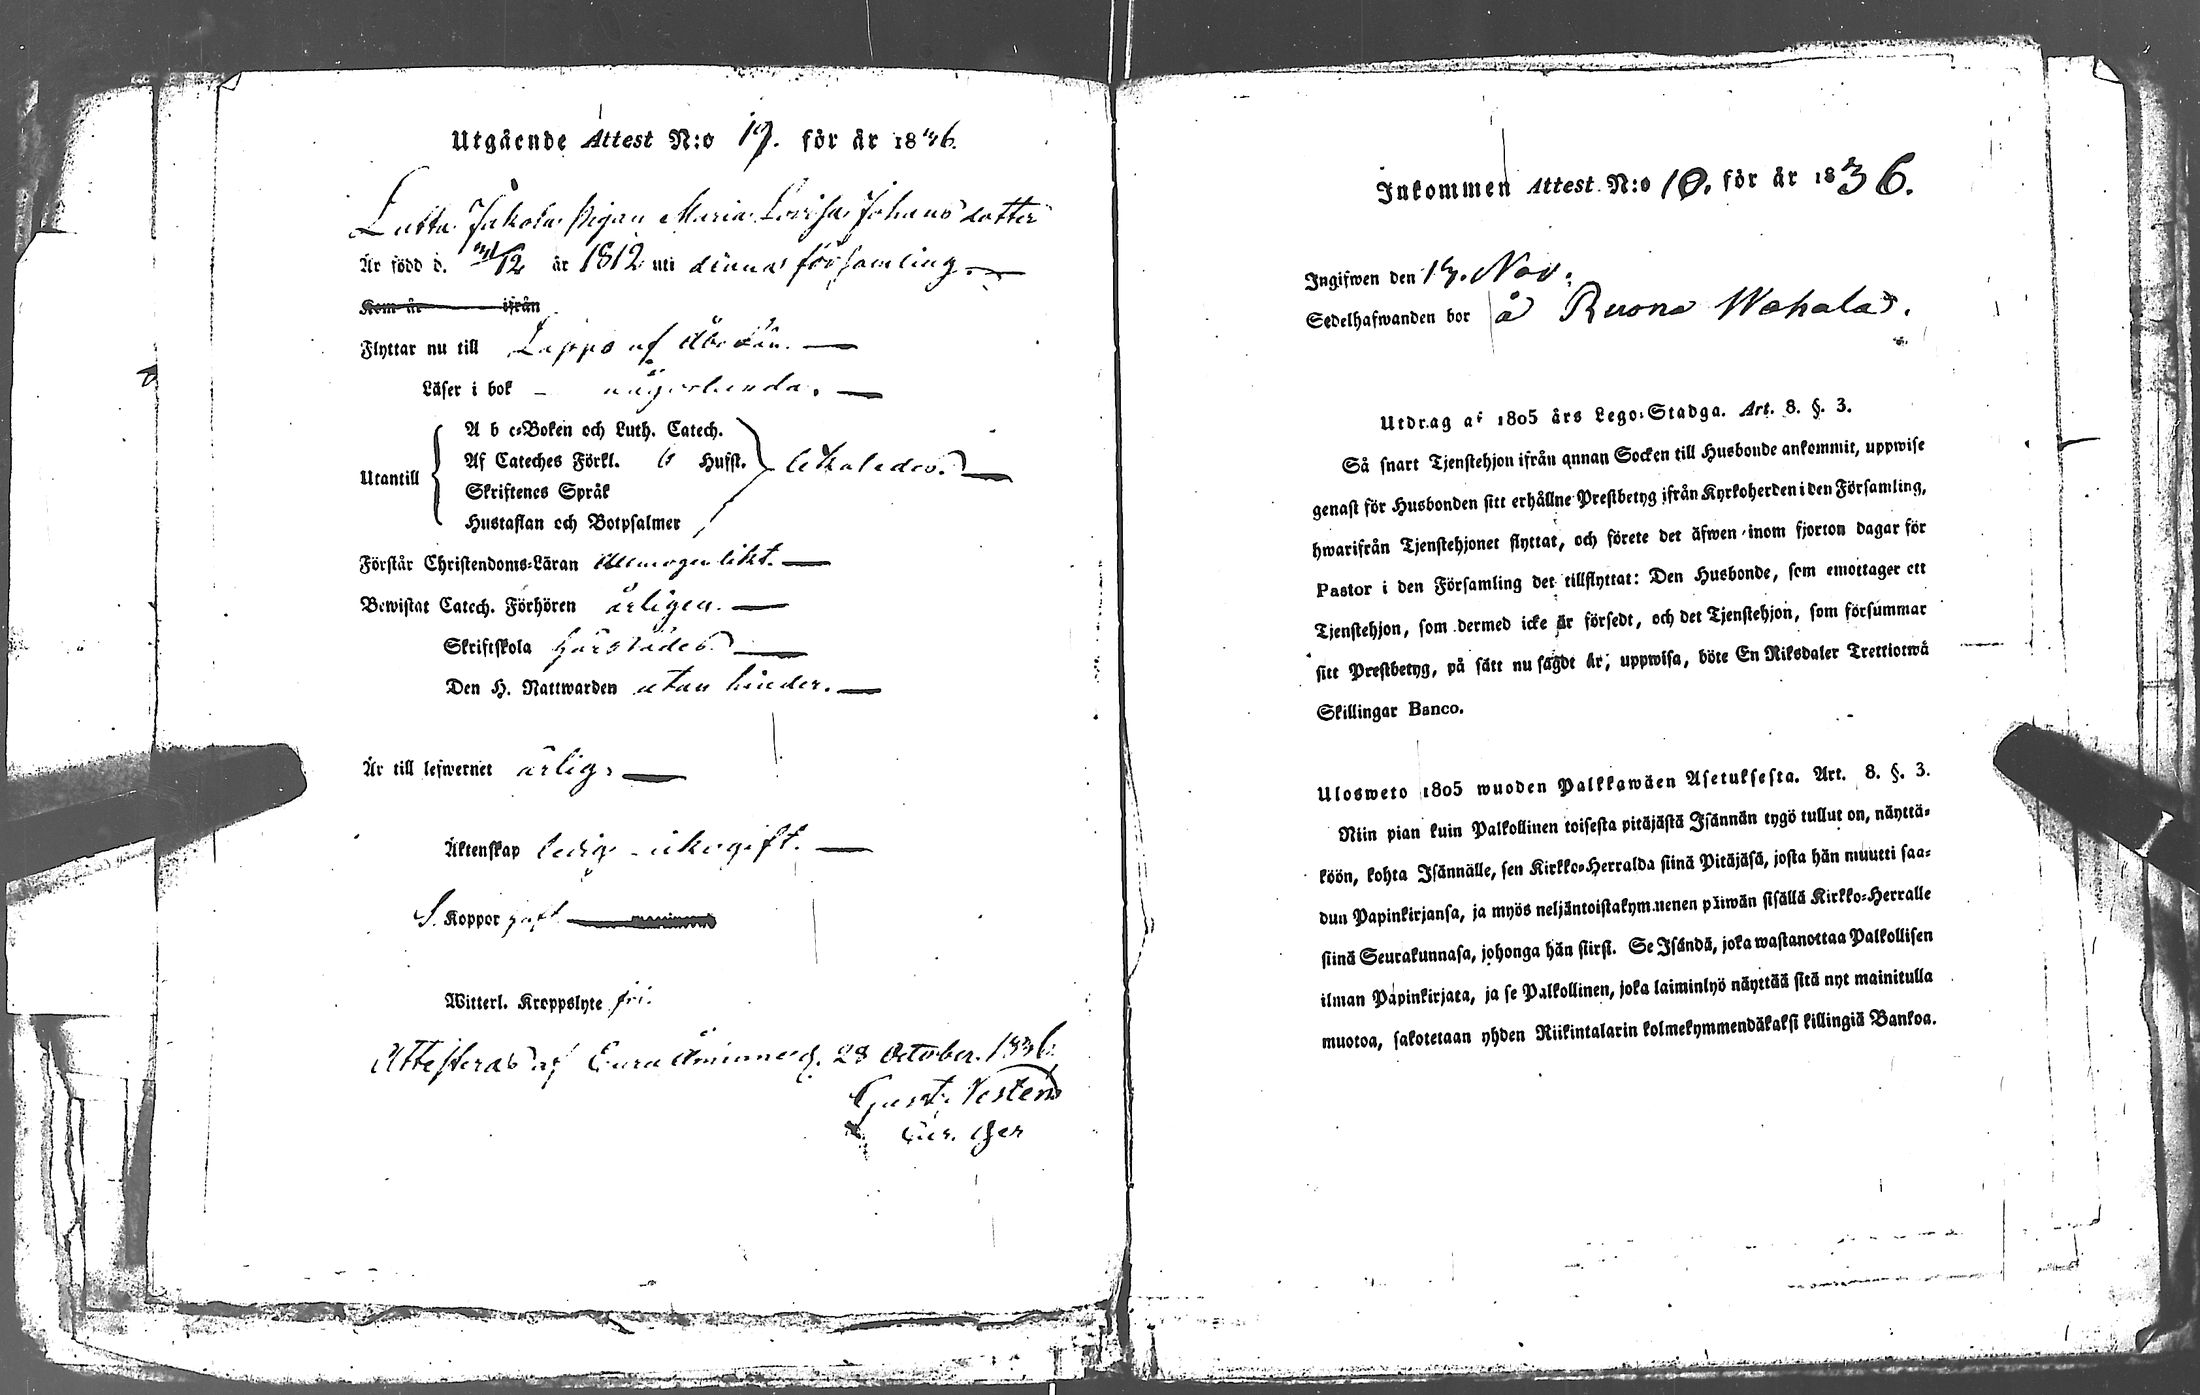 Utgående Attest N:o 17. för år 1836.
Lutta Jakola Pigan Maria Lovisa Johansdotter
Är född d. /12 år 1812 uti denna församling.
Kom år ifrån
Flyttar nu till Lappo af Åbo Län.
Läser i bok någorlunda.
A b c-Boken och Luth. Catech.
Af Cateches Förkl. Husst.
Utantill
Skriftenes Språk
Hustaflan och Botpsalmer
Förstår Christendoms-Läran allmogenlikt.
Bewistat Catech. Förhören årligen.
Skriftskola härstädes
Den H. Nattwarden utan hinder.
Är till lefwernet ärlig,
Äktenskap ledig
S. Koppor haft
Witterl. Kroppslyte fri.
Attesteras af Eura Åminne d. 28 October. 1836.
Gust.
Inkommen Attest N:o 10. för år 1836.
Ingifwen den 17. Nov.
Sedelhafwanden bor å Ruona Wahala.
Utdrag af 1805 års Lego-Stadga. Art. 8. §. 3.
Så snart Tjenstehjon ifrån annan Socken till Husbonde ankommit, uppwise
genast för Husbonden sitt erhållne Prestbetyg ifrån Kyrkoherden i den Församling,
hwarifrån Tjenstehjonet flyttat, och förete det äfwen inom fjorton dagar för
Pastor i den Församling det tillflyttat: Den Husbonde, som emottager ett
Tjenstehjon, som dermed icke är försedt, och det Tjenstehjon, som försummar
sitt Prestbetyg, på sätt nu sagdt är, uppwisa, böte En Riksdaler Trettiotwå
Skillingar Banco.
Ulosweto 1805 wuoden Palkkawäen Asetuksesta. Art. 8. §. 3.
Niin pian kuin Palkollinen toisesta pitäjästä Isännän tygö tullut on, näyttä-
köön, kohta Isännälle, sen Kirkko-Herralda siinä Pitäjäsä, josta hän muutti saa-
dun Papinkirjansa, ja myös neljäntoistakymmenen päiwän sisällä Kirkko-Herralle
siinä Seurakunnasa, johonga hän siirsi. Se Isändä, joka wastanottaa Palkollisen
ilman Papinkirjata, ja se Palkollinen, joka laiminlyö näyttää sitä nyt mainitulla
muotoa, sakotetaan yhden Riikintalarin kolmekymmendäkaksi killingiä Bankoa.